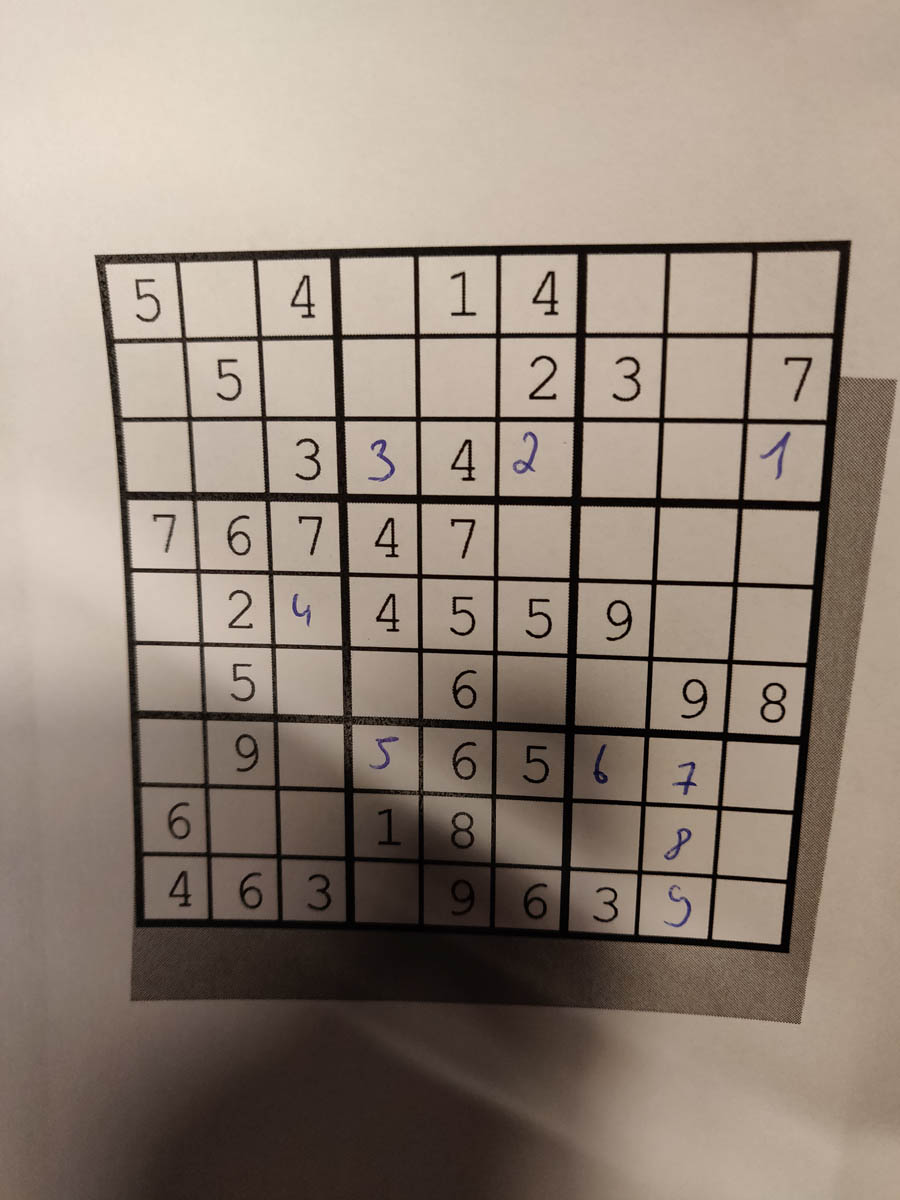 5 4 1 4
5 2 3 7
3 3 4 2 1
7 6 7 4 7
2 4 4 5 5 9
5 6 9 8
9 5 6 5 6 7
6 1 8 8
4 6 3 9 6 3 9